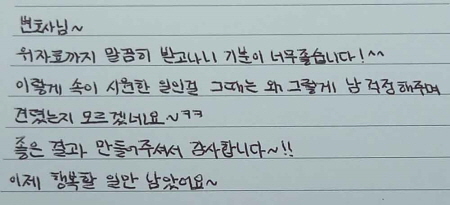 변호사님~
위자료까지 말끔히 받고나니 기분이 너무좋습니다!^^
이렇게 속이 시원한 일인걸 그때는 왜 그렇게 남 걱정해주며
견뎠는지 모르겠네요~ㅋㅋ
좋은 결과 만들어주셔서 감사합니다~!!
이제 행복할 일만 남았어요~